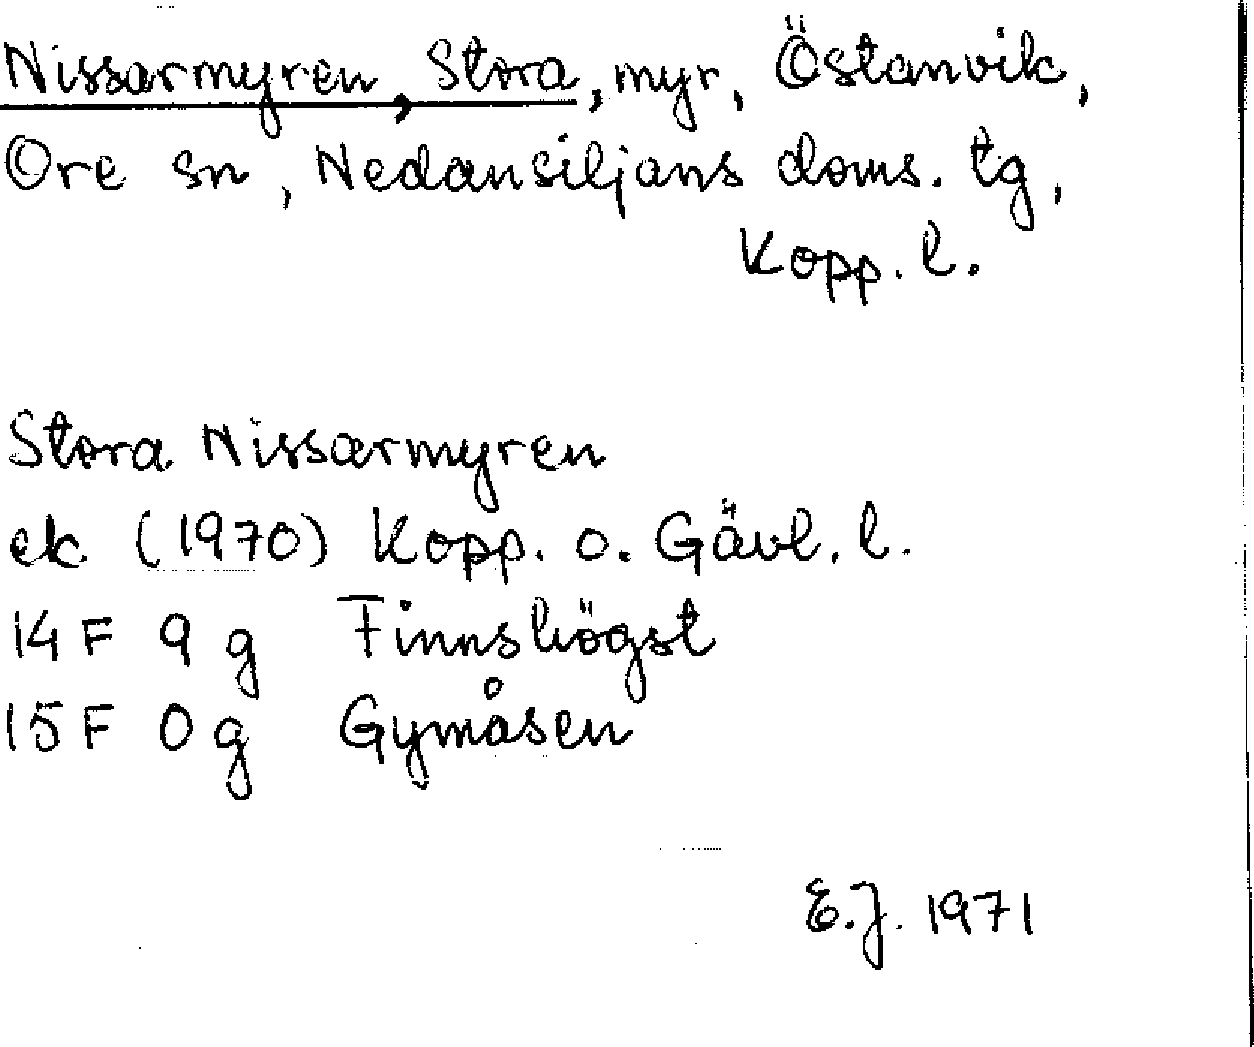 Nissarmyren, Stora, myr, Östanvik,
Ore sn, Nedansiljans doms. tg,
Kopp. l.
Stora Nissarmyren
ek (1970) Kopp. o. Gävl. l.
14 F 9 g Finnshögst
15 F 0 g Gymåsen
E.J. 1971